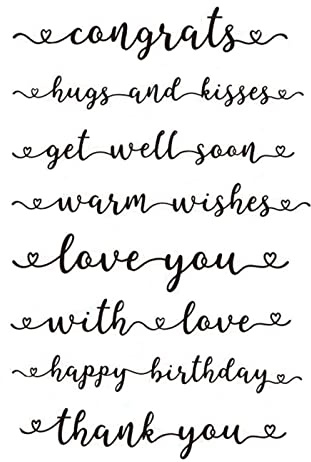 congrats
hugs and kisses
get well soon
warm wishes
love you
with love
happy birthday
thank you